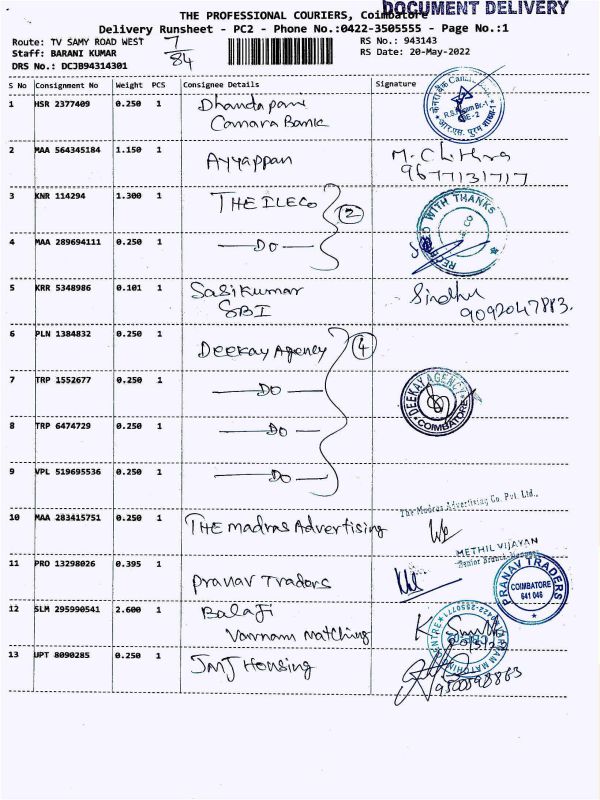 DOCUMENT DELIVERY
THE PROFESSIONAL COURIERS, Coimbatore
Delivery Runsheet - PC2 - Phone No.:0422-3505555 - Page No.:1
Route: TV SAMY ROAD WEST 7/84 RS No.: 943143
Staff: BARANI KUMAR RS Date: 20-May-2022
DRS No.: DCJB94314301
S No Consignment No Weight PCS Consignee Details Signature
1 HSR 2377409 0.250 1 Dhandapani
Canara Bank
2 MAA 564345184 1.150 1 Ayyappan M. Chithra
9677131717
3 KNR 114294 1.300 1 THE ILECO 2
RECEIVED WITH THANKS
4 MAA 289694111 0.250 1 DO
5 KRR 5348986 0.101 1 Sasikumar Sindhu
SBI 9092047883.
6 PLN 1384832 0.250 1 Deekay Agency 4
7 TRP 1552677 0.250 1 DO
DEEKAY AGENCY
COIMBATORE
8 TRP 6474729 0.250 1 DO
9 VPL 519695536 0.250 1 DO
The Madras Advertising Co. Pvt. Ltd.,
10 MAA 283415751 0.250 1 THE madras Advertising
METHIL VIJAYAN
Senior Branch Manager
11 PRO 13298026 0.395 1 Pranav Traders
PRANAV TRADERS
COIMBATORE
641 046
12 SLM 295990541 2.600 1 Balaji
Varnam matching
13 UPT 8090285 0.250 1 JMJ Housing
9500598863